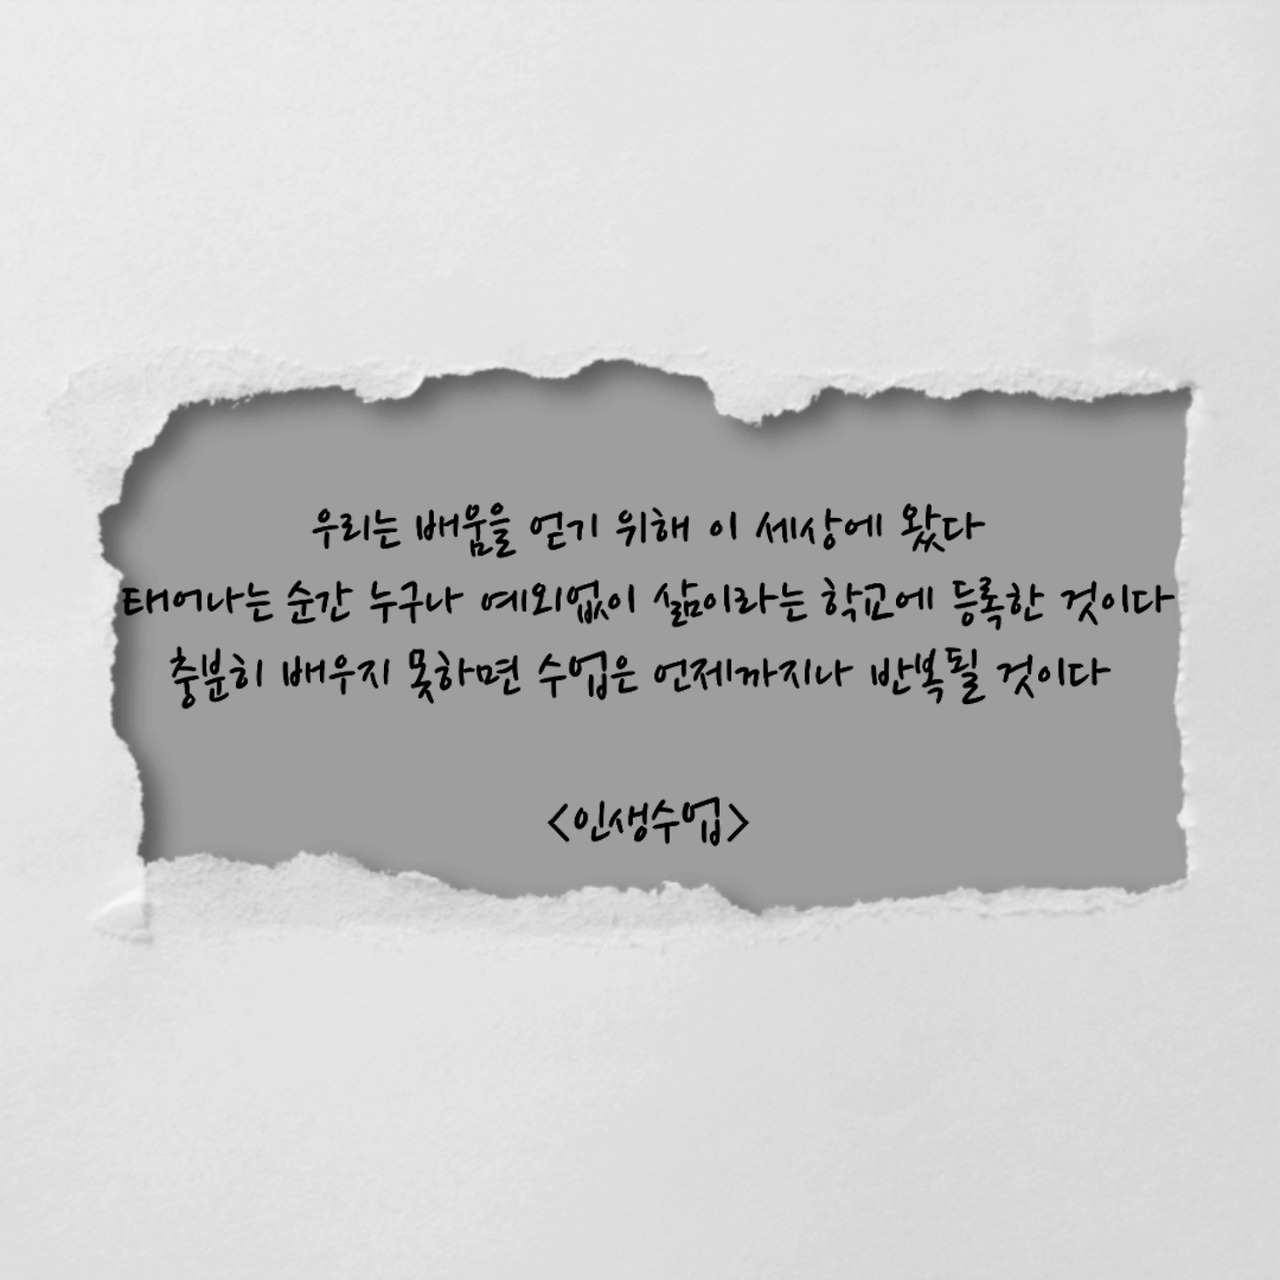 우리는 배움을 얻기 위해 이 세상에 왔다
태어나는 순간 누구나 예외없이 삶이라는 학교에 등록한 것이다
충분히 배우지 못하면 수업은 언제까지나 반복될 것이다
<인생수업>